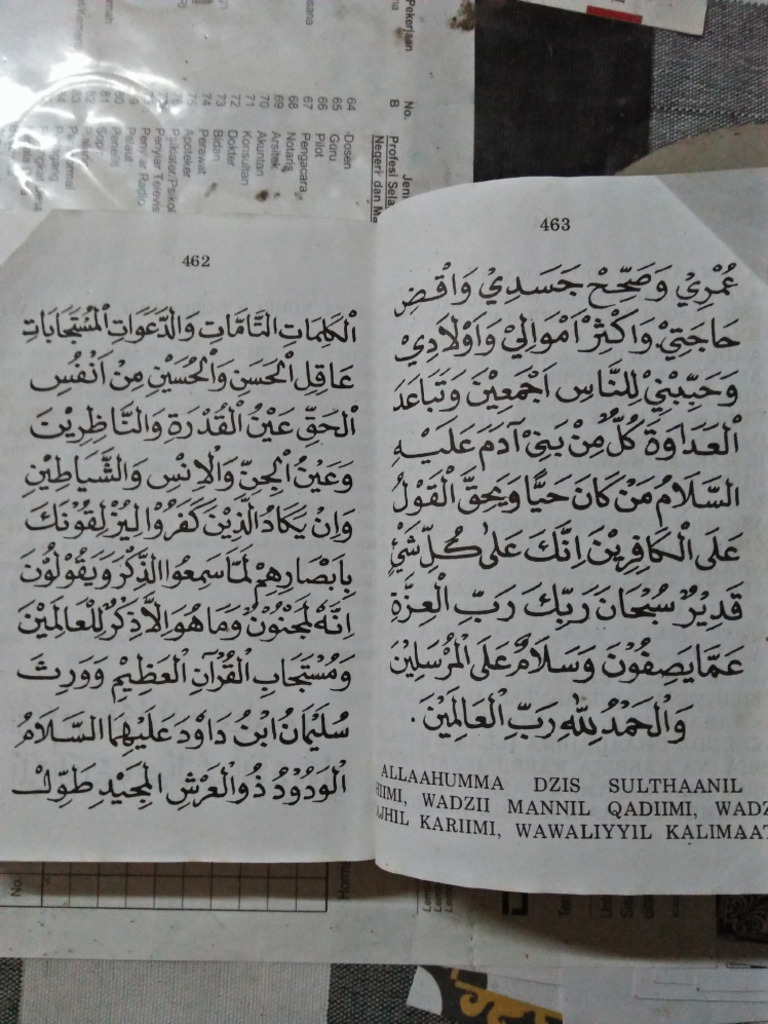 462
الْكَلِمَاتِ التَّامَّاتِ وَالدَّعَوَاتِ الْمُسْتَجَابَاتِ
عَاقِلِ الْحَسَنِ وَالْحُسَيْنِ مِنْ اَنْفُسِ
الْحَقِّ عَيْنُ الْقُدْرَةِ وَالنَّاظِرِيْنَ
وَعَيْنُ الْجِنِّ وَالْاِنْسِ وَالشَّيَاطِيْنِ
وَاِنْ يَكَادُ الَّذِيْنَ كَفَرُوْا لَيُزْلِقُوْنَكَ
بِاَبْصَارِهِمْ لَمَّا سَمِعُوا الذِّكْرَ وَيَقُوْلُوْنَ
اِنَّهُ لَمَجْنُوْنٌ وَمَا هُوَ اِلَّا ذِكْرٌ لِلْعَالَمِيْنَ
وَمُسْتَجَابِ الْقُرْآنِ الْعَظِيْمِ وَوَرِثَ
سُلَيْمَانُ ابْنُ دَاوُدَ عَلَيْهِمَا السَّلَامُ
الْوَدُوْدُ ذُو الْعَرْشِ الْمَجِيْدِ طَوِّلْ
463
عُمْرِيْ وَصَحِّحْ جَسَدِيْ وَاقْضِ
حَاجَتِيْ وَاَكْثِرْ اَمْوَالِيْ وَاَوْلَادِيْ
وَحَبِّبْنِيْ لِلنَّاسِ اَجْمَعِيْنَ وَتَبَاعَدَ
الْعَدَاوَةَ كُلَّ مِنْ بَنِيْ آدَمَ عَلَيْهِ
السَّلَامُ مَنْ كَانَ حَيًّا وَيَحِقَّ الْقَوْلُ
عَلَى الْكَافِرِيْنَ اِنَّكَ عَلَى كُلِّ شَيْءٍ
قَدِيْرٌ سُبْحَانَ رَبِّكَ رَبِّ الْعِزَّةِ
عَمَّا يَصِفُوْنَ وَسَلَامٌ عَلَى الْمُرْسَلِيْنَ
وَالْحَمْدُ لِلّٰهِ رَبِّ الْعَالَمِيْنَ.
ALLAAHUMMA DZIS SULTHAANIL
WADZII MANNIL QADIIMI,
KARIIMI, WAWALIYYIL
Pekerjaan
No.
B Profesi
Negeri dan
64 Dosen
65 Guru
66 Pilot
67 Pengacara
68 Notaris
69 Arsitek
70 Akuntan
71 Konsultan
72 Dokter
73 Bidan
74 Perawat
75 Apoteker
Penyiar Radio
No.